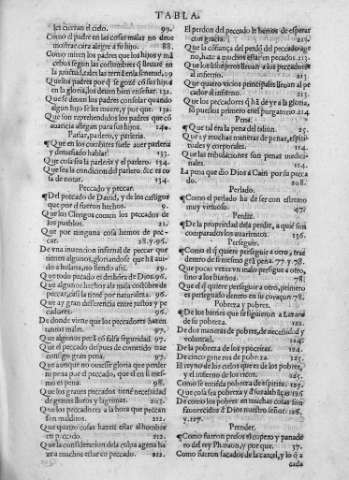 TABLA.
les cierran el cielo. 93.
Como el padre en las cosas malas no deue
mostrar cara alegre a su hijo. 88.
Como miren los padres que los hijos y mã
cebos segun las costumbres q̃ lleuarẽ en
la juuẽtud, tales las ternã en la senetud. 99
Que los padres por q̃ se gozẽ cõ sus hijos
en la gloria, los deuen bien enseñar. 131.
Que se deuen los padres consolar quando
algun hijo se les muere, y por que. 132.
Que son reprehendidos los padres que cõ
auaricia allegan para sus hijos. 140.
Parlar, parleria, y parleria.
¶Que en los combites suele auer parleria
y demasiado hablar. 133.
Que cosa sea la parleria y el parlero. 134.
Que sea la condicion del parlero. &c. es co
sa de notar. 134.
Peccado y peccar.
¶Del peccado de Dauid, y de los castigos
que por el fueron hechos. 9.
Que los Clerigos comen los peccados de
los pueblos. 21.
Que por ninguna cosa hemos de pec-
car. 28. y. 96.
De vna inuencion infernal de peccar que
tienen algunos, gloriandose que hã auí-
do a fulana, no siendo assi. 19.
De que todo peccado es deshecho de Dios. 96.
Que algunos hechos a la mala costũbre de
peccar, casi la tienẽ por naturaleza. 96.
Que ay gran differencia entre justos y pe
cadores. 96.
De donde viene que los peccadores hazen
tantos males. 97.
Que algunos peccã cõ falsa seguridad. 97.
Que el peccado despues de cometido trae
consigo gran pena. 97.
Que aunque no ouiesse gloria que perder
ni pena por el peccado, que el en si mes-
mo es pena. 98.
Que los graues peccados tiene necessidad
de graues lloros y lagrimas. 203.
Que los peccadores a la hora que peccan
son malditos. 212.
Que quatro cosas hazen estar al hombre
en peccado. 212.
Que la consideracion de la culpa agena ha
ze a muchos estar en peccado. 212.
El perdon del peccado le hemos de esperar
con gracia.
Que la cõfiança del perdõ del peccado age
no, haze a muchos estar en pecados. 213.
al infierno. 213.
Que quatro vicios principales lleuan al pe
cador al infierno. 213.
Que los peccadores q̃ hã de yr a la gloria,
son puestos primero en el purgatorio. 214.
Pena.
¶Que tal era la pena del talion. 25.
Que ay muchas maneras de penas, espiri
tuales y corporales. 114.
Que las tribulaciones son penas medici-
nales. 114.
La pena que dio Dios a Cain por su pecca
do. 208.
Perlado.
¶Como el perlado ha de ser con estremo
muy virtuoso. 47.
Perdiz.
¶De la propriedad de la perdiz, a quiẽ son
comparados los auarientos. 136.
Perseguir.
¶Como el q̃ quiere perseguir a otro, traẽ
dentro de si mesmo grã pena. 77. y. 78.
Que pocas vezes vn malo persigue a otro,
sino a los buenos. 78.
Que el q̃ quiere perseguir a otro, primero
es perseguido dentro en su coraçon 78.
Pobreza y pobres.
¶De los bienes que se siguieron a Lazaro
de su pobreza. 121.
De dos maneras de pobres, de necessidad y
voluntad. 124.
De la pobreza de los ypocritas. 124.
De cinco generos de pobreza. 125.
El reyno de los cielos que es de los pobres,
y el infierno de los ricos. 125.
Como se entiẽda pobreza de espiritu. 125.
Que cosa sea pobreza y sus alabãças. 126.
De como los pobres en muchas cosas son
fauorecidos d̃ Dios nuestro señor. 126.
y. 127.
Prender.
¶Como fueron presos el copero y panade
ro del rey Pharaon, y por que. 37.
Como fueron sacados de la carcel, y lo q̃ a
cada